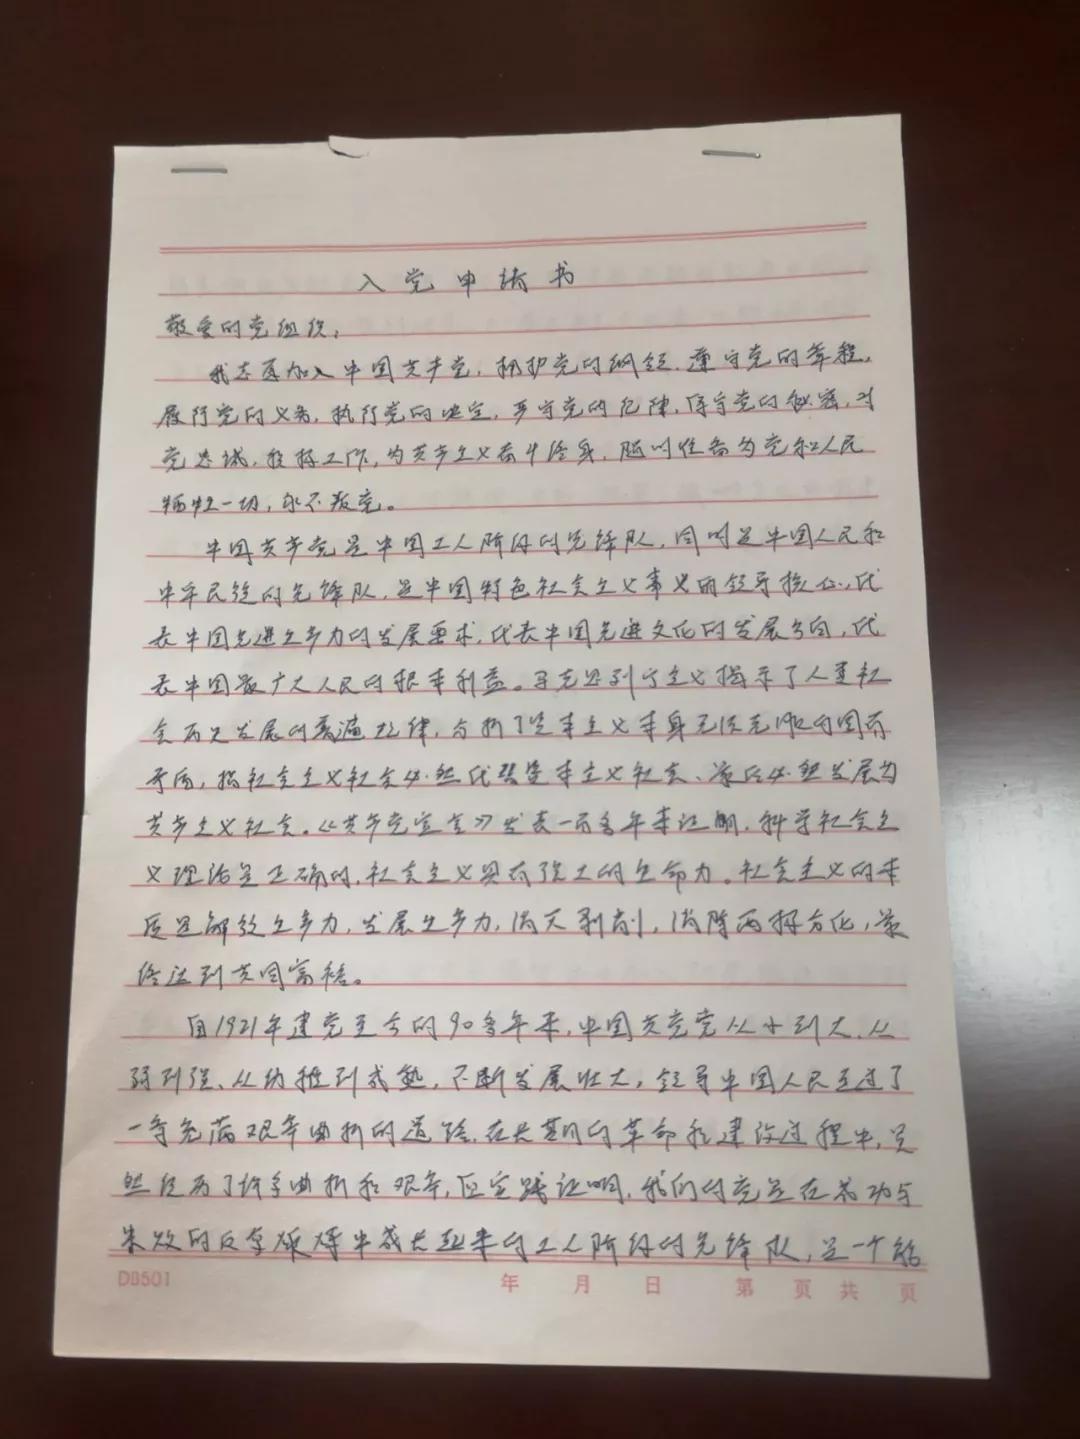 入党申请书
敬爱的党组织：
我志愿加入中国共产党，拥护党的纲领，遵守党的章程，
履行党的义务，执行党的决定，严守党的纪律，保守党的秘密，对
党忠诚，积极工作，为共产主义奋斗终身，随时准备为党和人民
牺牲一切，永不叛党。
中国共产党是中国工人阶级的先锋队，同时是中国人民和
中华民族的先锋队，是中国特色社会主义事业的领导核心，代
表中国先进生产力的发展要求，代表中国先进文化的发展方向，代
表中国最广大人民的根本利益。马克思列宁主义揭示了人类社
会历史发展的普遍规律，分析了资本主义本身无法克服的固有
矛盾，指社会主义社会必然代替资本主义社会、最后必然发展为
共产主义社会。《共产党宣言》发表一百多年来证明，科学社会主
义理论是正确的，社会主义具有强大的生命力。社会主义的本
质是解放生产力，发展生产力，消灭剥削，消除两极分化，最
终达到共同富裕。
自1921年建党至今的90多年来，中国共党党从小到大、从
弱到强、从幼稚到成熟，不断发展壮大，领导中国人民走过了
一条充满艰辛曲折的道路，在长期的革命和建设过程中，虽
然经历了许多曲折和艰辛，但实践证明，我们的党是在成功与
失败的反复砺得中成长起来的工人阶级的先锋队，是一个能
DB501 年 月 日 第 页 共 页